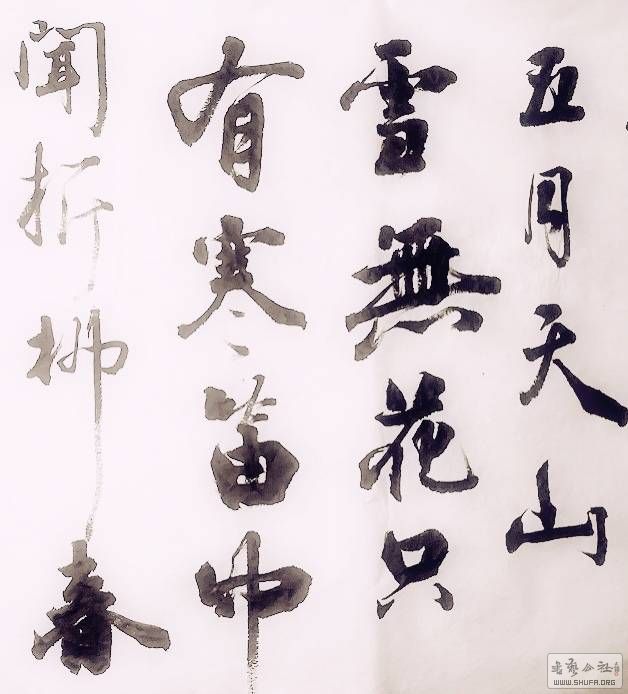 五月天山
雪無花只
有寒笛中
聞折柳春
WWW.SHUFA.ORG